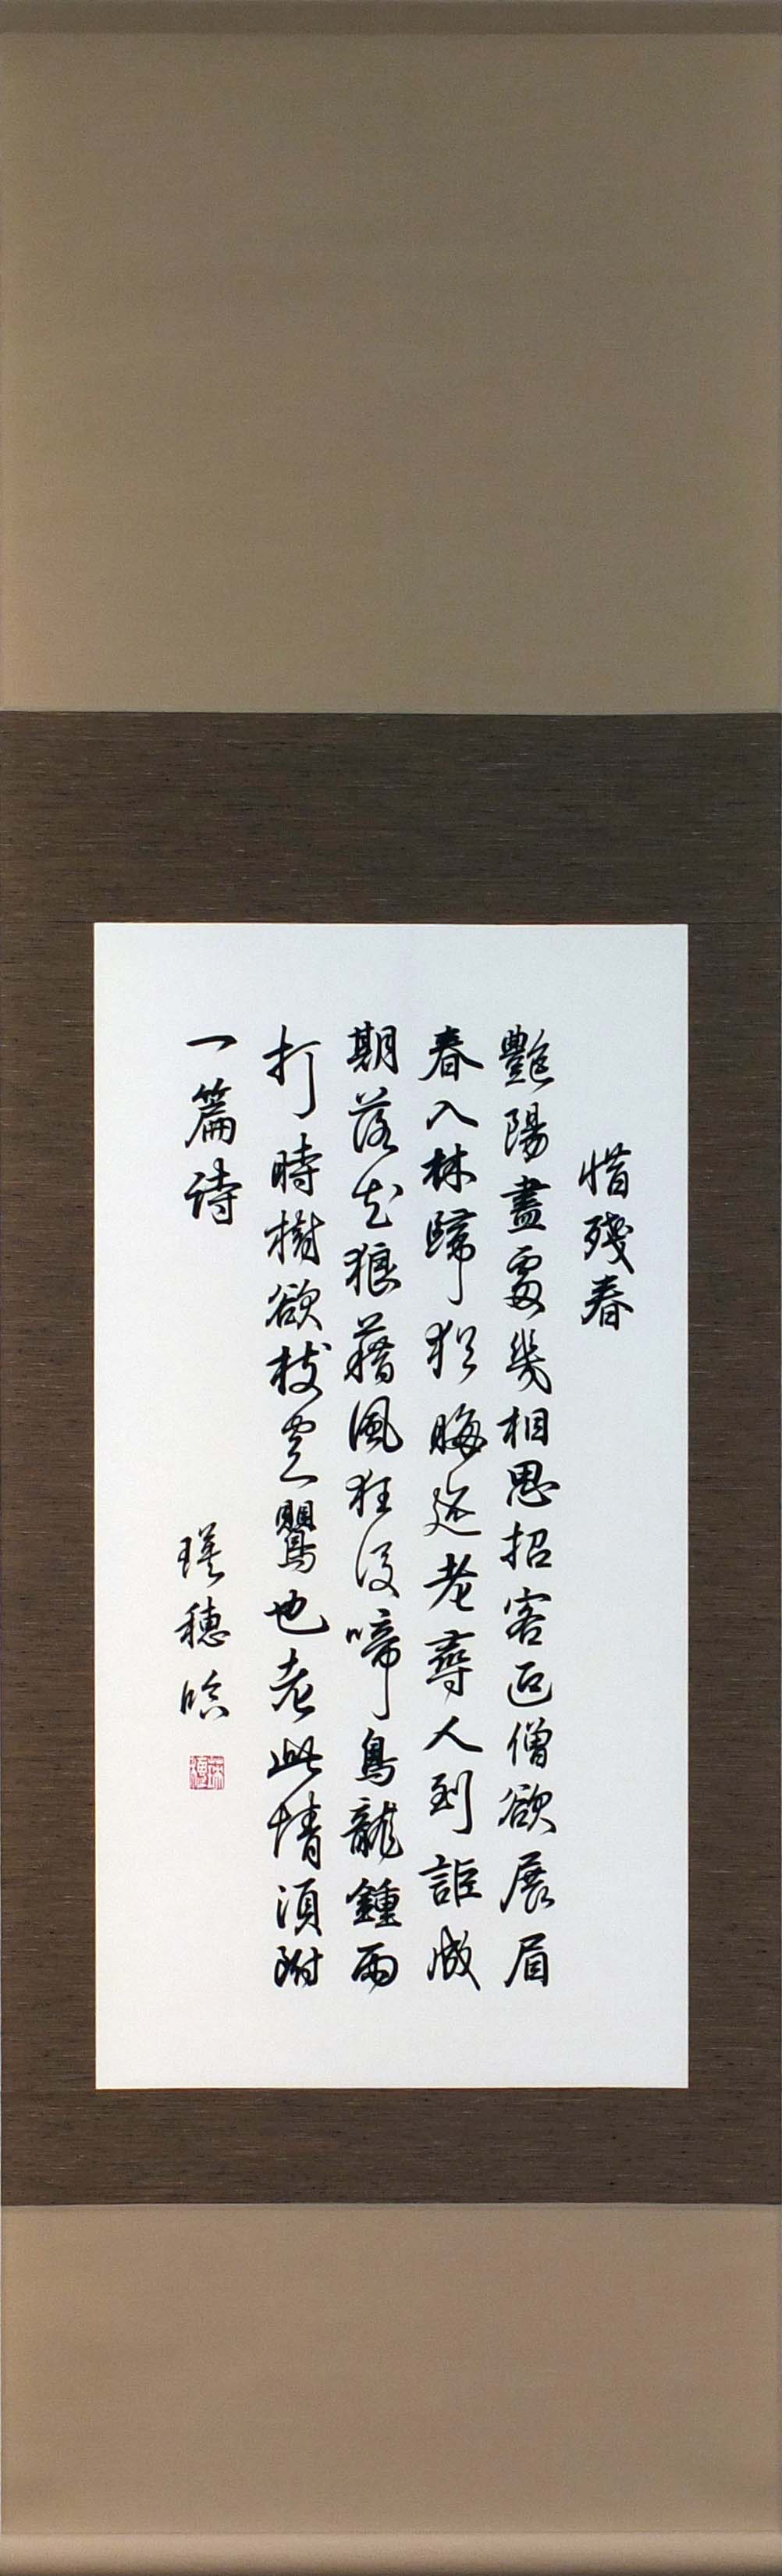 惜殘春
艷陽盡處幾相思招客迎僧欲展眉
春入林歸猶晦迹老尋人到詎成
期落花狼藉風狂後啼鳥龍鍾雨
打時樹欲枝空鶯也老此情須附
一篇詩
瑛穗臨